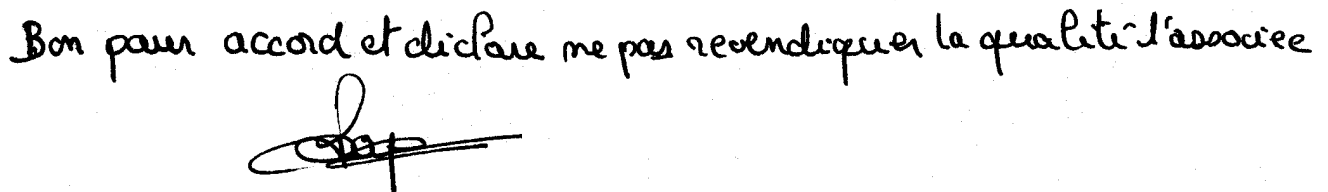 Bon pour accord et déclare ne pas revendiquer la qualité d'associée